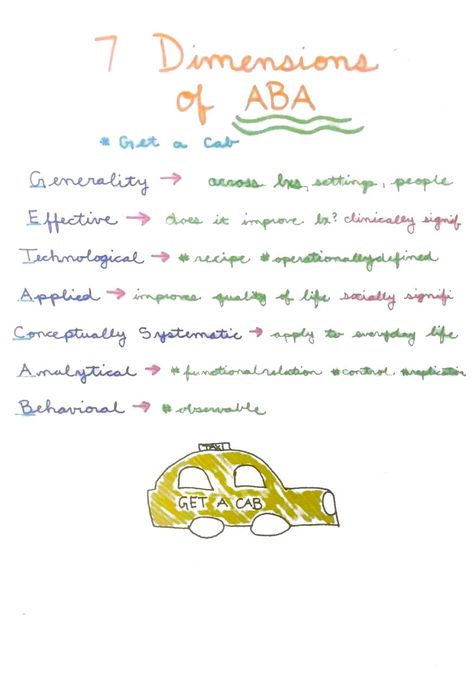 7 Dimensions
of ABA
* Get a cab
Generality → across bxs, settings, people
Effective → does it improve bx? clinically signif
Technological → #recipe #operationallydefined
Applied → improves quality of life socially signifi
Conceptually Systematic → apply to everyday life
Analytical → #functionalrelation #control, #replication
Behavioral → #observable
TAXI
GET A CAB